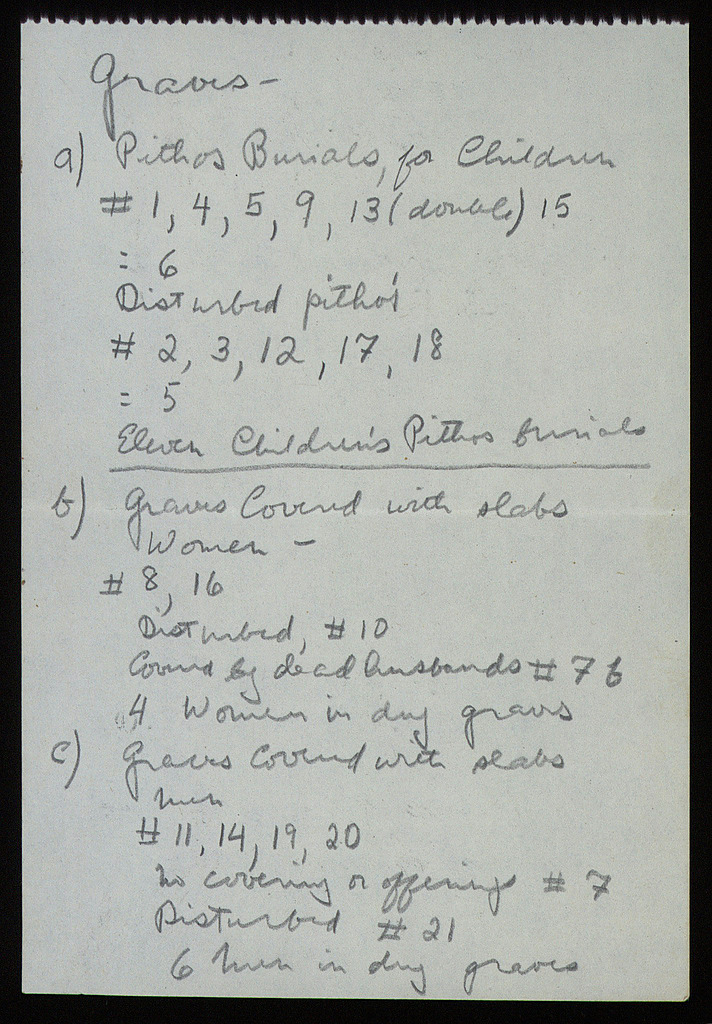 Graves -
a) Pithos Burials, for Children
# 1, 4, 5, 9, 13 (double) 15
= 6
Disturbed pithoi
# 2, 3, 12, 17, 18
= 5
Eleven Children's Pithos burials
b) Graves Covered with slabs
Women -
# 8, 16
Disturbed, # 10
Covered by dead husbands # 7 b
4 Women in dug graves
c) Graves Covered with slabs
Men
# 11, 14, 19, 20
No covering or offerings # 7
Disturbed # 21
6 Men in dug graves